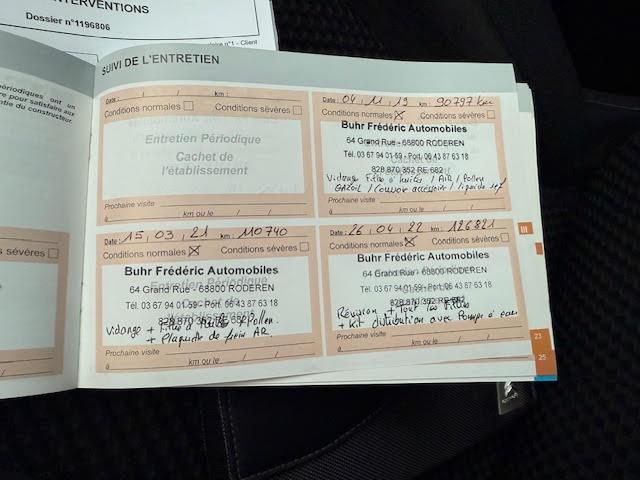 INTERVENTIONS
Dossier n°1196806
n°1 - Client
ériodiques ont un
pour satisfaire aux
du constructeur.
SUIVI DE L'ENTRETIEN
Date : / / km :
Conditions normales Conditions sévères
Entretien Périodique
Cachet de
l'établissement
Prochaine visite
à km ou le / /
Date : 04, 11, 19 km : 90797 km
Conditions normales Conditions sévères
Buhr Frédéric Automobiles
64 Grand Rue - 68800 RODEREN
Tél. 03 67 94 01 59 - Port. 06 43 87 63 18
828 870 352 RE 682
Vidange Filtre à huile / AIR / Pollen
GAZOIL / Courroie accessoire / liquide
Prochaine visite
à km ou le / /
Date : 15, 03, 21 km : 110740
Conditions normales Conditions sévères
Buhr Frédéric Automobiles
64 Grand Rue - 68800 RODEREN
Tél. 03 67 94 01 59 - Port. 06 43 87 63 18
Vidange + Filtre à huile Pollen
+ Plaquette de frein AR.
Prochaine visite
à km ou le / /
Date : 26, 04, 22 km : 126821
Conditions normales Conditions sévères
Buhr Frédéric Automobiles
64 Grand Rue - 68800 RODEREN
Tél. 03 67 94 01 59 - Port. 06 43 87 63 18
828 870 352 RE
Révision + Tout les Filtre
+ Kit distribution avec Pompe à eau
Prochaine visite
à km ou le / /
s sévères
III
23
25